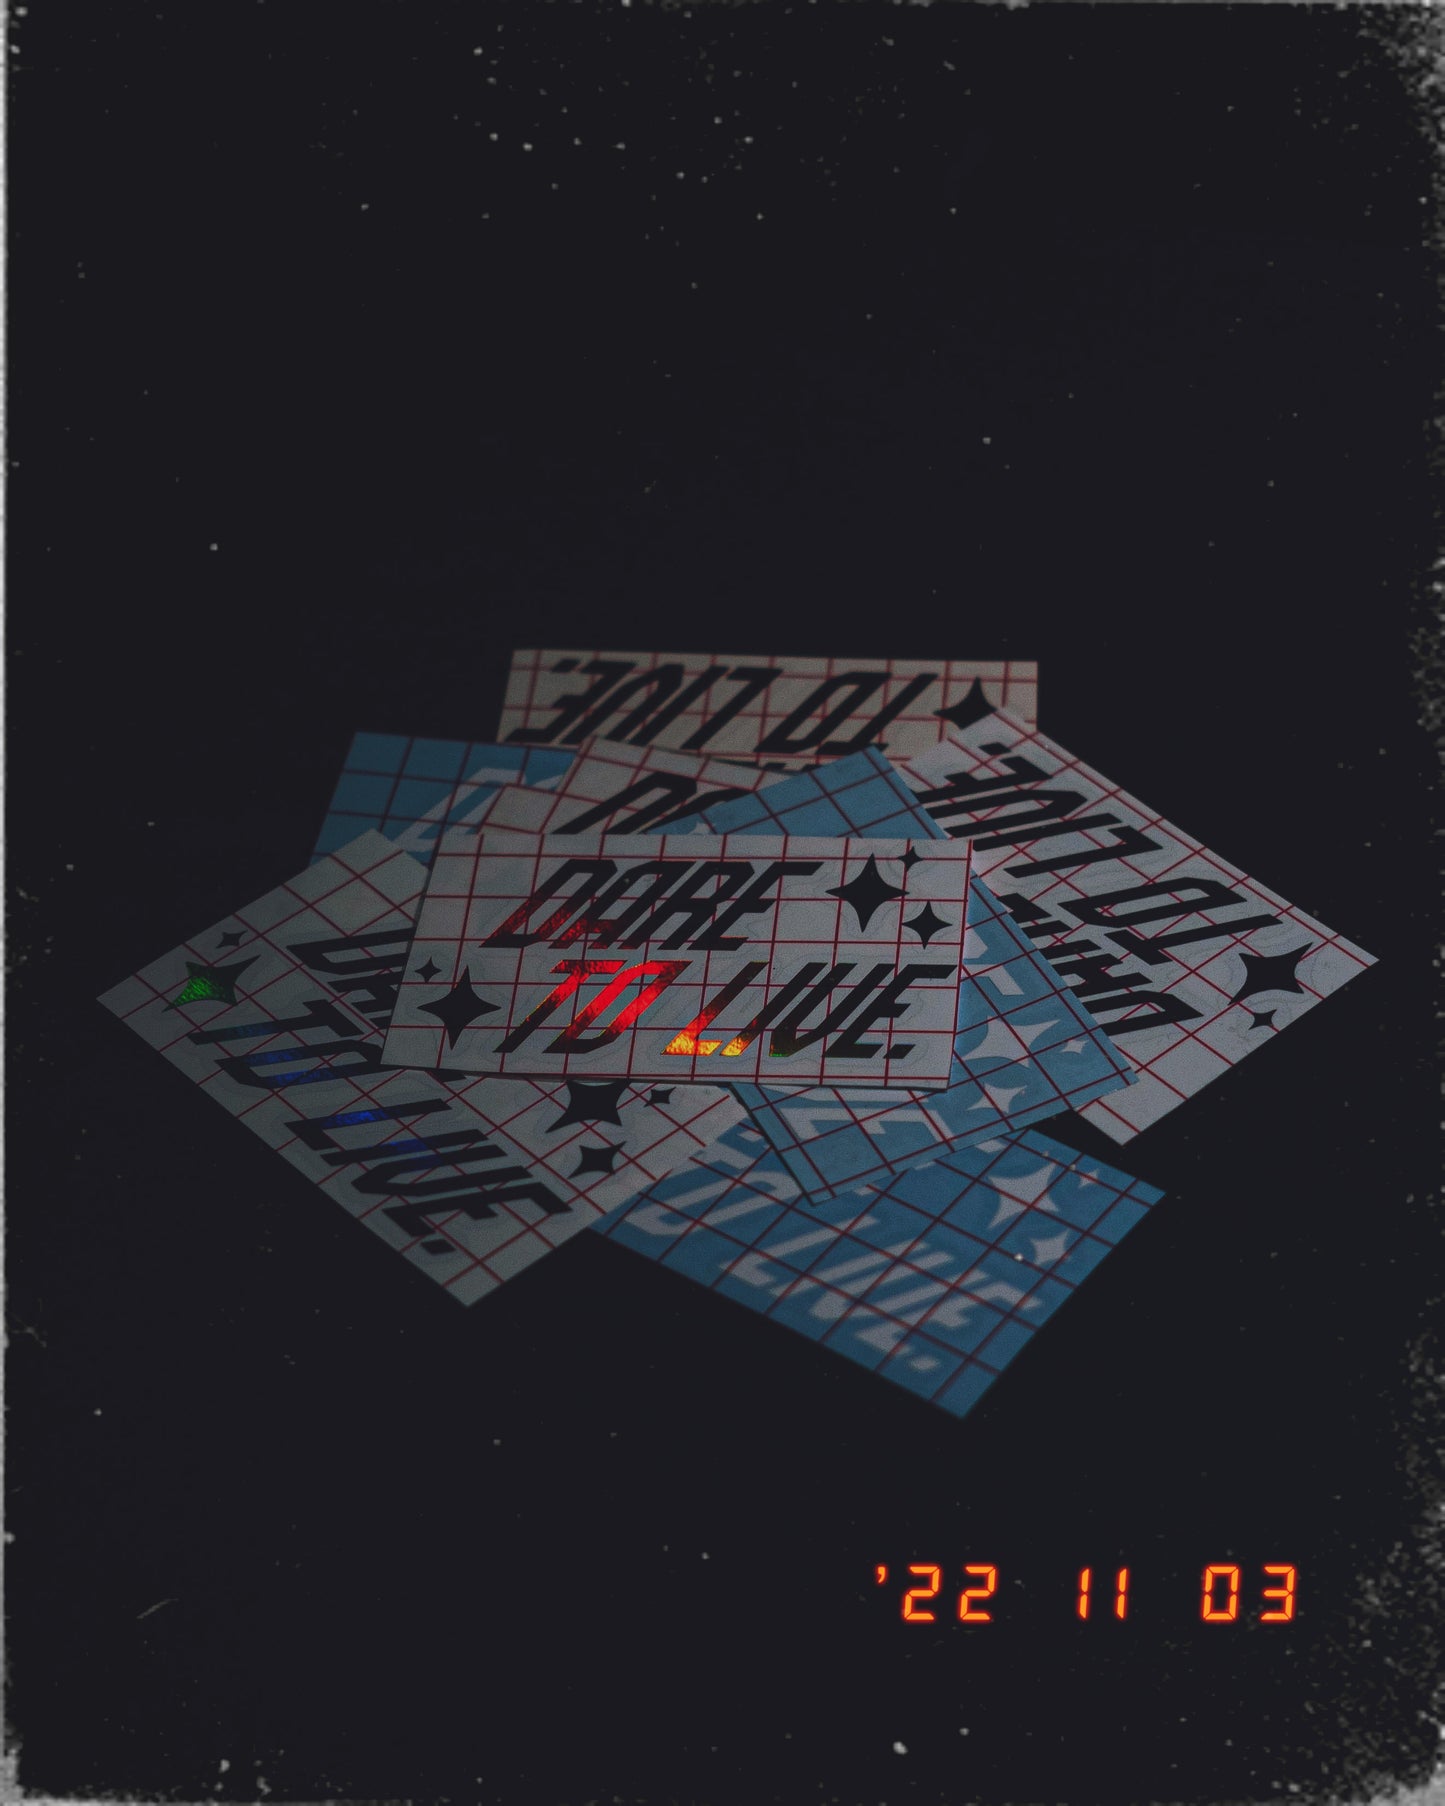 TO LIVE.
TO LIVE.
DARE
TO LIVE.
TO LIVE.
TO LIVE.
'22 11 03